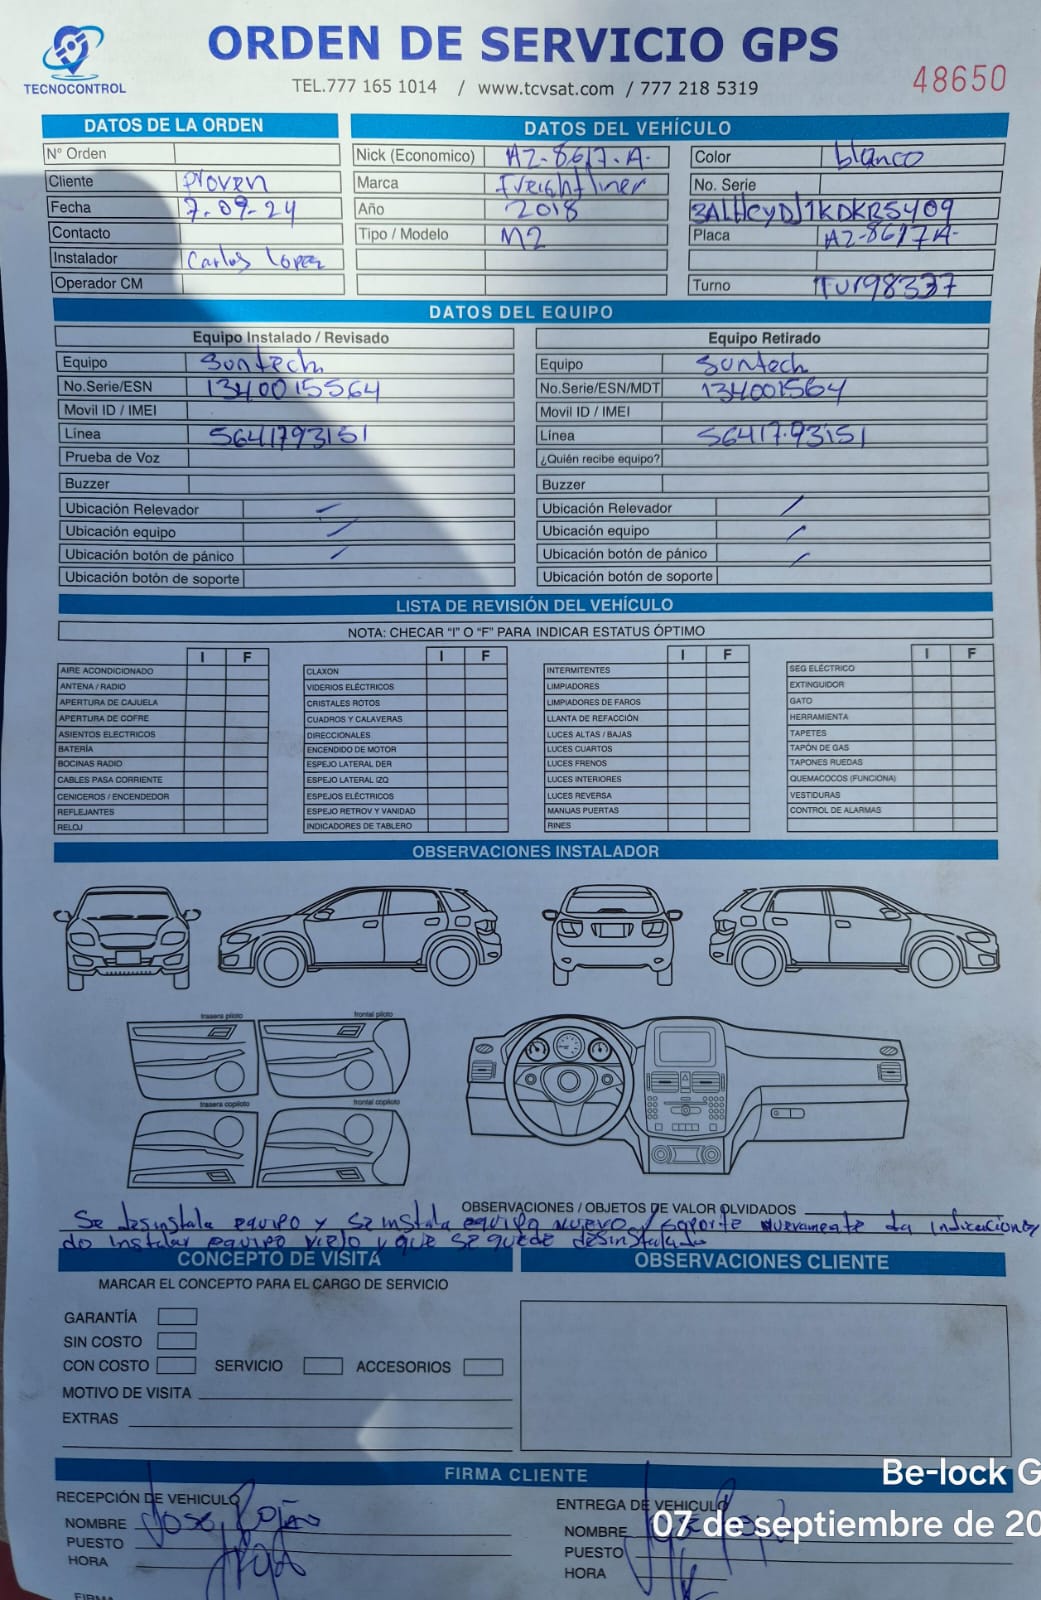 TECNOCONTROL
ORDEN DE SERVICIO GPS
TEL.777 165 1014 / www.tcvsat.com / 777 218 5319
48650
DATOS DE LA ORDEN
N° Orden
Cliente Proven
Fecha 7-09-24
Contacto
Instalador Carlos Lopez
Operador CM
DATOS DEL VEHÍCULO
Nick (Economico) AZ-8617-A-
Marca Freightliner
Año 2018
Tipo / Modelo M2
Color blanco
No. Serie
3ALHCYDJ1KDKR5409
Placa AZ-8617A-
Turno TU198337
DATOS DEL EQUIPO
Equipo Instalado / Revisado
Equipo Suntech
No.Serie/ESN 1340015564
Movil ID / IMEI
Línea 5641793151
Prueba de Voz
Buzzer
Ubicación Relevador
Ubicación equipo
Ubicación botón de pánico
Ubicación botón de soporte
Equipo Retirado
Equipo Suntech
No.Serie/ESN/MDT 134001564
Movil ID / IMEI
Línea 56417.93151
¿Quién recibe equipo?
Buzzer
Ubicación Relevador
Ubicación equipo
Ubicación botón de pánico
Ubicación botón de soporte
LISTA DE REVISIÓN DEL VEHÍCULO
NOTA: CHECAR "I" O "F" PARA INDICAR ESTATUS ÓPTIMO
I F
AIRE ACONDICIONADO
ANTENA / RADIO
APERTURA DE CAJUELA
APERTURA DE COFRE
ASIENTOS ELECTRICOS
BATERÍA
BOCINAS RADIO
CABLES PASA CORRIENTE
CENICEROS / ENCENDEDOR
REFLEJANTES
RELOJ
I F
CLAXON
VIDERIOS ELÉCTRICOS
CRISTALES ROTOS
CUADROS Y CALAVERAS
DIRECCIONALES
ENCENDIDO DE MOTOR
ESPEJO LATERAL DER
ESPEJO LATERAL IZQ
ESPEJOS ELÉCTRICOS
ESPEJO RETROV Y VANIDAD
INDICADORES DE TABLERO
I F
INTERMITENTES
LIMPIADORES
LIMPIADORES DE FAROS
LLANTA DE REFACCIÓN
LUCES ALTAS / BAJAS
LUCES CUARTOS
LUCES FRENOS
LUCES INTERIORES
LUCES REVERSA
MANIJAS PUERTAS
RINES
I F
SEG ELÉCTRICO
EXTINGUIDOR
GATO
HERRAMIENTA
TAPETES
TAPÓN DE GAS
TAPONES RUEDAS
QUEMACOCOS (FUNCIONA)
VESTIDURAS
CONTROL DE ALARMAS
OBSERVACIONES INSTALADOR
trasera piloto
frontal piloto
trasera copiloto
frontal copiloto
OBSERVACIONES / OBJETOS DE VALOR OLVIDADOS
Se desinstala equipo y se instala equipo nuevo / soporte nuevamente da indicaciones
do instalar equipo viejo y que se quede desinstalado
CONCEPTO DE VISITA
MARCAR EL CONCEPTO PARA EL CARGO DE SERVICIO
GARANTÍA
SIN COSTO
CON COSTO SERVICIO ACCESORIOS
MOTIVO DE VISITA
EXTRAS
OBSERVACIONES CLIENTE
FIRMA CLIENTE
RECEPCIÓN DE VEHICULO
NOMBRE Jose
PUESTO
HORA
FIRMA
ENTREGA DE VEHICULO
NOMBRE
PUESTO
HORA
Be-lock G
07 de septiembre de 20